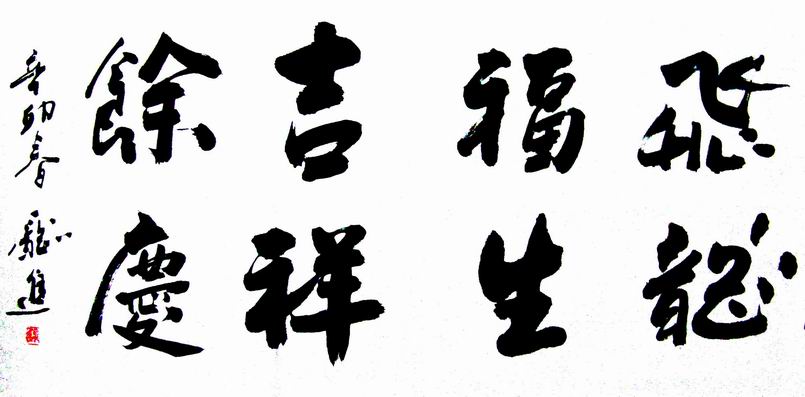 飛龍
福生
吉祥
餘慶
辛卯春
進